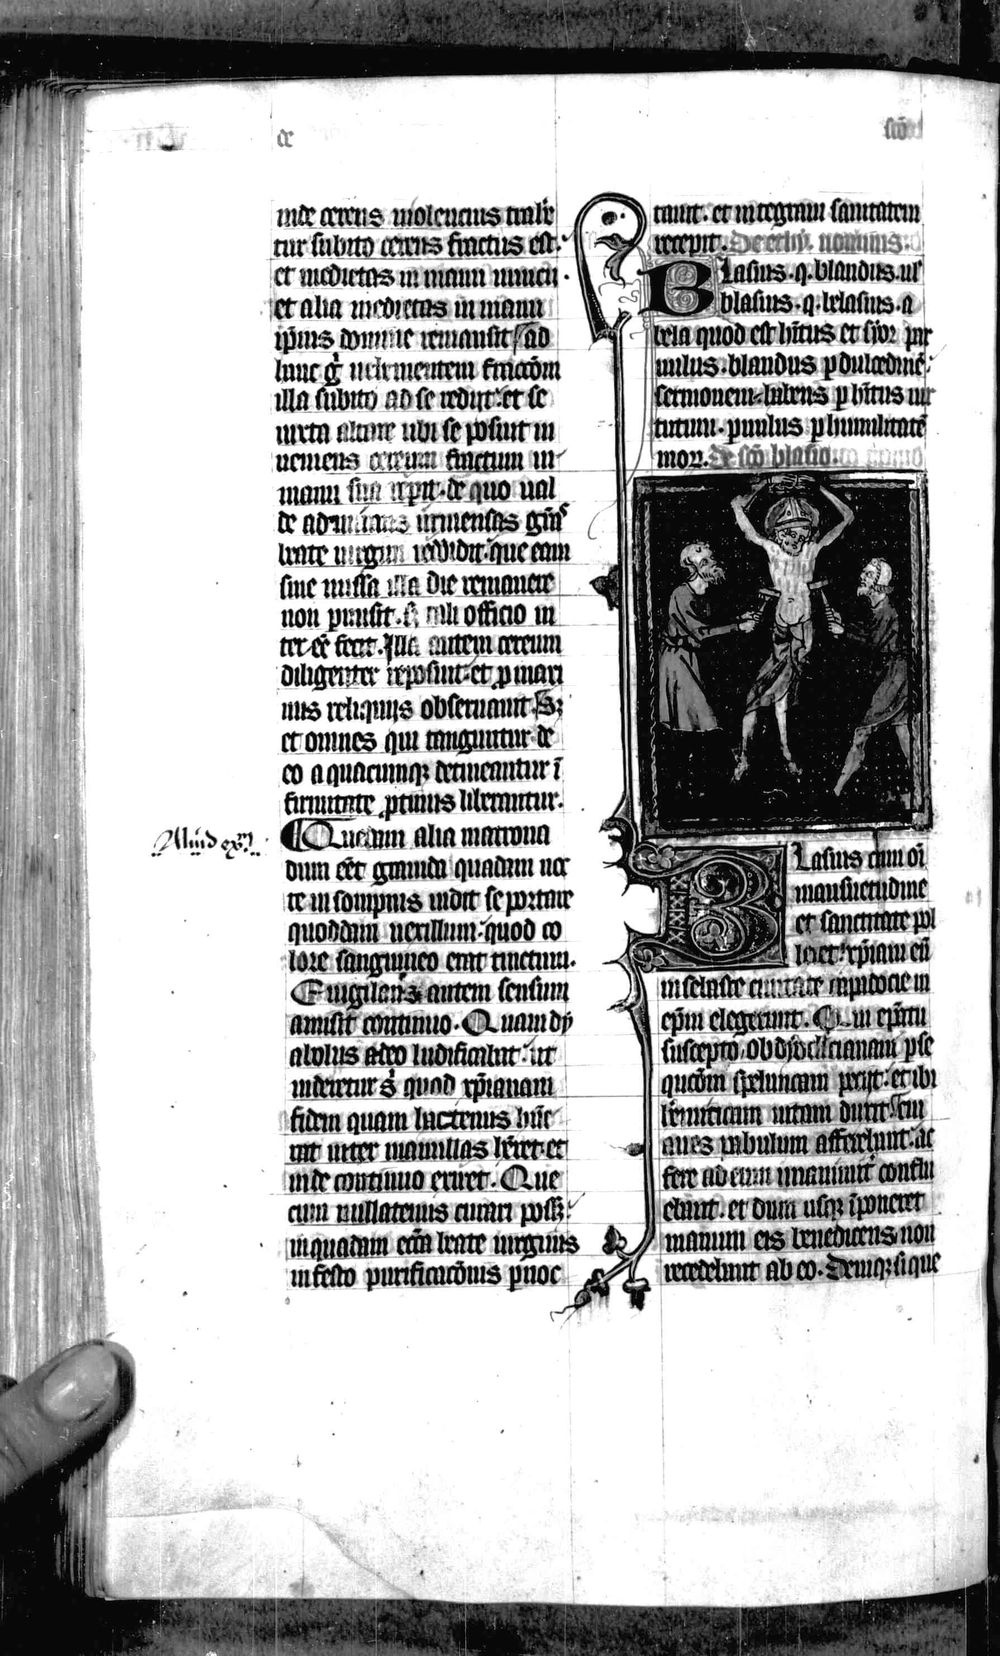 de
scō
inde cereus violencius trahe
tur subito cereus fractus est.
et medietas in manu nuncii.
et alia medietas in manu
ip̄ius domine remansit ad
hunc g̊ uehementem fractōm
illa subito ad se rediit. et se
iuxta altare ubi se posuit in
ueniens cereum fractum in
manu sua repit. de quo ual
de admirans immensas gr̄as
beate uirgini reddidit. que eam
sine missa illa die remanere
non pmisit. officio in
ter eē fecit. Illa autem cereum
diligenter reposuit. et p mari
mis reliquijs obseruauit. Sꝫ
et omnes qui tanguntur de
eo a quacumqꝫ detineantur ī
firmitate ptinus liberantur.
Aliud exm̄
Quedam alia matrona
dum eēt grauida quadam noc
te in sompnis uidit se portare
quoddam uexillum. quod co
lore sanguineo erat tinctum.
Euigilans autem sensum
amisit continuo. Quam dy
abolus adeo ludificabat. ut
uideretur s̉ quod xp̄ianam
fidem quam hactenus hūe
rat inter mamillas hēret. et
inde continuo exiret. Que
cum nullatenus curari possꝫ.
in quadam ecc̄a beate uirginis
in festo purificacōnis pnoc
tauit. et integram sanitatem
recepit. De ethy. nominis.
Blasius. q. blandus. ul̄
blasius. q. belasius. a
bela quod est hītus et syor par
uulus. blandus p dulcedinē.
sermonem. habens p hītus uir
tutum. puulus p humilitatē
mor. de scō blasio.
Blasius cum oī
mansuetudine
et sanctitate pol
leret. xp̄iani eū
in sebaste ciuitate capadocie in
ep̄m elegerunt. Qui ep̄atu
suscepto ob dyoclicianam pse
qucōm speluncam petijt. et ibi
heremiticam uitam duxit. cui
aues pabulum afferebant. ac
fere ad eum unanimit̉ conflu
ebant. et dum usqꝫ īponeret
manum eis benedicens. non
recedebant ab eo. Deniqꝫ si que